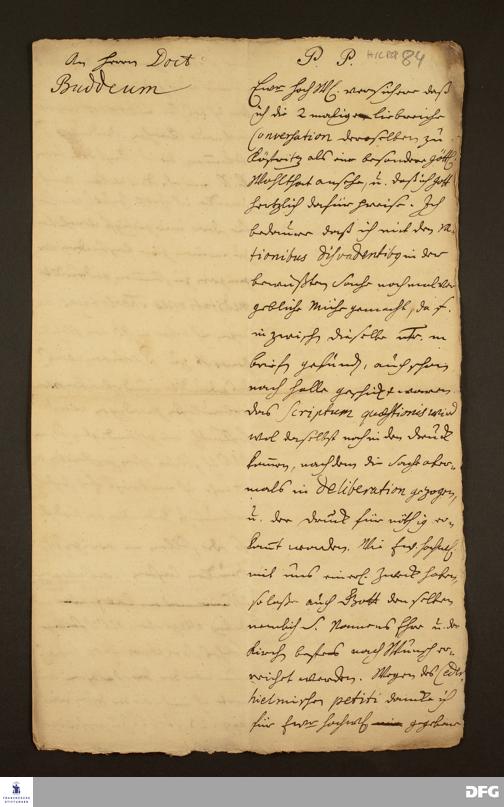 An Herrn Doct:
Buddeum
P P.
84
Ewr HochW. versichere daß
ich die 2 malige liebreiche
Conversation deroselben zu
Köstritz als eine besondere Göttl.
Wohlthat ansehe, u. daß ich Gott
hertzlich dafür preise. Ich
bedaure daß ich mit den ra-
tionibus dissvadentibus in der
bewußten Sache nochmal ver-
gebliche Mühe gemacht, da
inzwischen dieselbe in
briefen gesucht, auch schon
nach Halle geschickt waren.
Das Scriptum quæstionis wird
wol daselbst noch in den Druck
kommen, nachdem die Sache aber-
mals in deliberation gezogen,
u. der Druck für nöthig er-
kant worden. Wie Ew. HochW.
mit uns einerl. Zweck haben,
so lasse auch Gott denselben
nemlich S. Namens Ehre u. der
Kirchen bestes nach Wunsch er-
reichet werden. Wegen des Ceder-
hielmischen petiti dancke ich
für Ewr HochW. gegebene
FRANCKESCHE
STIFTUNGEN
DFG